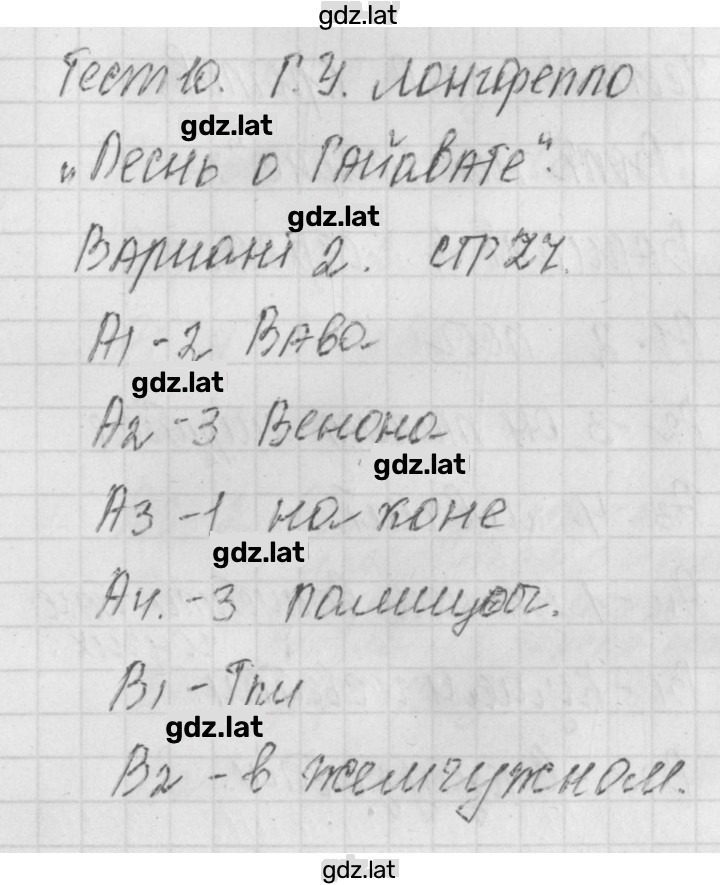 gdz.lat
Тест 10. Г. У. Лонгфелло
gdz.lat
„Песнь о Гайавате".
gdz.lat
Вариант 2. стр 24.
А1 - 2 Вава
gdz.lat
А2 - 3 Венона
gdz.lat
А3 - 1 на коне
gdz.lat
А4. - 3 палицы.
В1 - Три
gdz.lat
В2 - в жемчужном.
gdz.lat